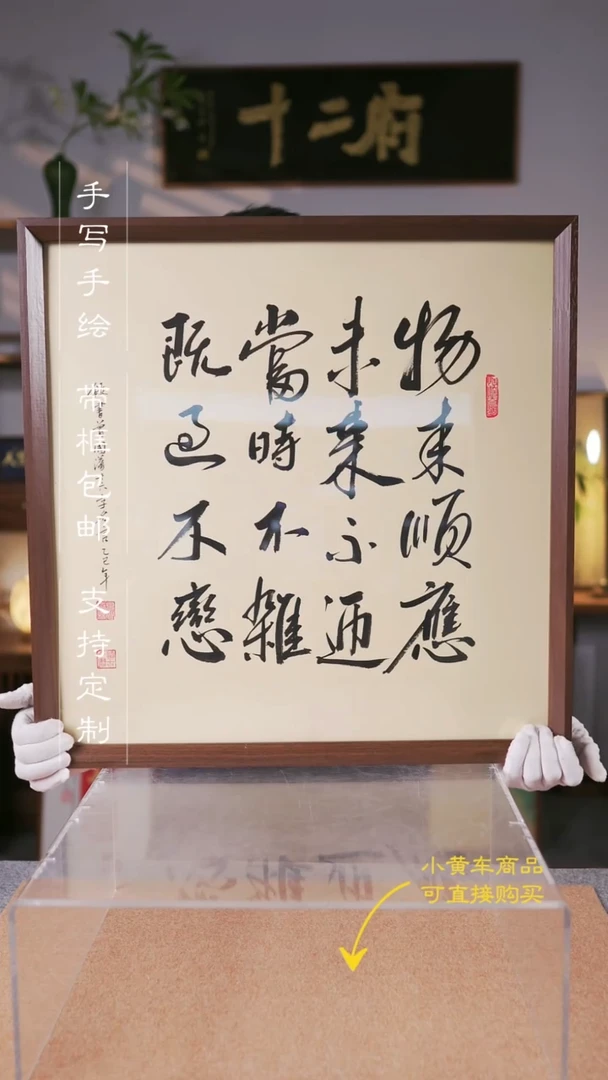 十二府
物来順應
未来不迎
當時不雜
既過不戀
乙巳年
手写手绘 带框包邮 支持定制
小黄车商品
可直接购买